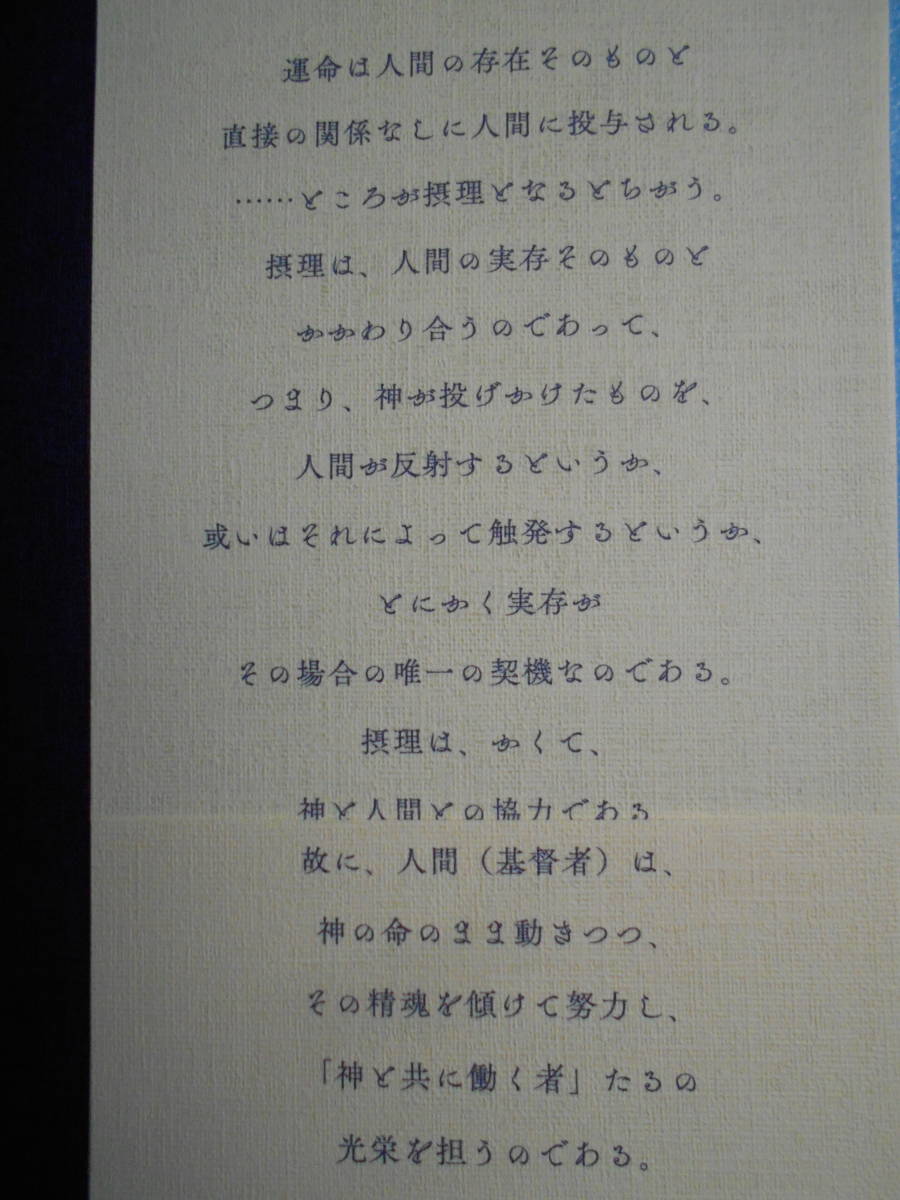 運命は人間の存在そのものと
直接の関係なしに人間に投与される。
……ところが摂理となるとちがう。
摂理は、人間の実存そのものと
かかわり合うのであって、
つまり、神が投げかけたものを、
人間が反射するというか、
或いはそれによって触発するというか、
とにかく実存が
その場合の唯一の契機なのである。
摂理は、かくて、
神と人間との協力である
故に、人間（基督者）は、
神の命のまま動きつつ、
その精魂を傾けて努力し、
「神と共に働く者」たるの
光栄を担うのである。